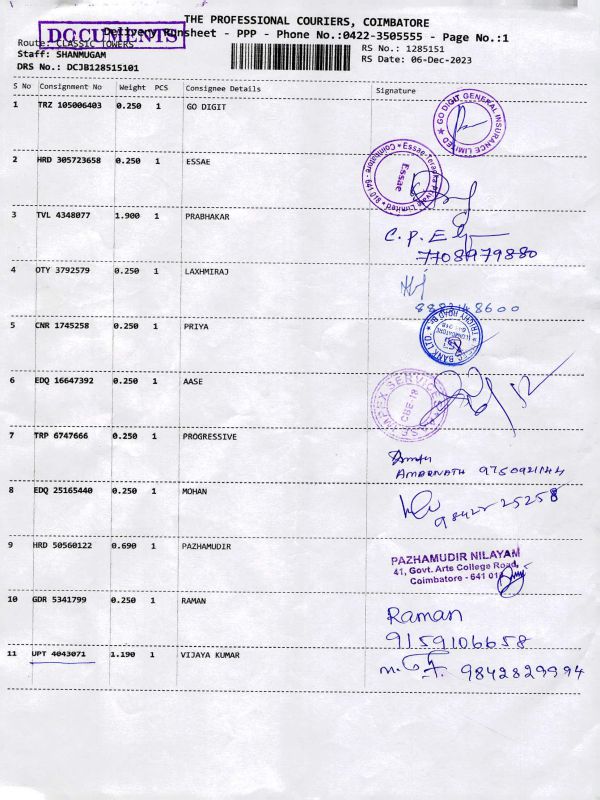 THE PROFESSIONAL COURIERS, COIMBATORE
DOCUMENTS
Delivery Runsheet - PPP - Phone No.:0422-3505555 - Page No.:1
Route: CLASSIC TOWERS
RS No.: 1285151
Staff: SHANMUGAM
RS Date: 06-Dec-2023
DRS No.: DCJB128515101
S No Consignment No Weight PCS Consignee Details Signature
1 TRZ 105006403 0.250 1 GO DIGIT
GO DIGIT GENERAL INSURANCE LIMITED
2 HRD 305723658 0.250 1 ESSAE
Essae-Teraoka Private Limited Coimbatore - 641 018
Essae
3 TVL 4348077 1.900 1 PRABHAKAR
C. P. E
7708979880
4 OTY 3792579 0.250 1 LAXHMIRAJ
8600
5 CNR 1745258 0.250 1 PRIYA
BANK LTD. TRICHY ROAD BR
COIMBATORE
641 018
6 EDQ 16647392 0.250 1 AASE
APEX SERVICES
CBE-18
7 TRP 6747666 0.250 1 PROGRESSIVE
AMARNATH
8 EDQ 25165440 0.250 1 MOHAN
98422 25258
9 HRD 50560122 0.690 1 PAZHAMUDIR
PAZHAMUDIR NILAYAM
41, Govt. Arts College Road,
Coimbatore - 641 018
10 GDR 5341799 0.250 1 RAMAN
Raman
9159106658
11 UPT 4043071 1.190 1 VIJAYA KUMAR
9842829994